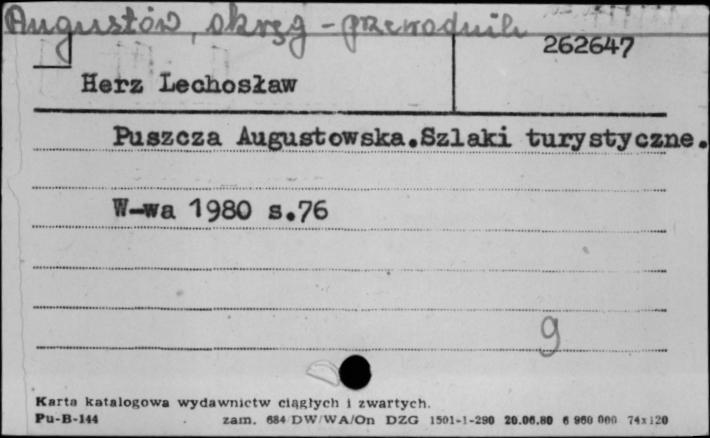 Augustów, okręg - przewodnik
262647
Herz Lechosław
Puszcza Augustowska.Szlaki turystyczne.
W-wa 1980 s.76
9
Karta katalogowa wydawnictw ciągłych i zwartych.
Pu-B-144 zam. 684/DW/WA/On DZG 1501-1-290 20.06.80 6 960 000 74x120